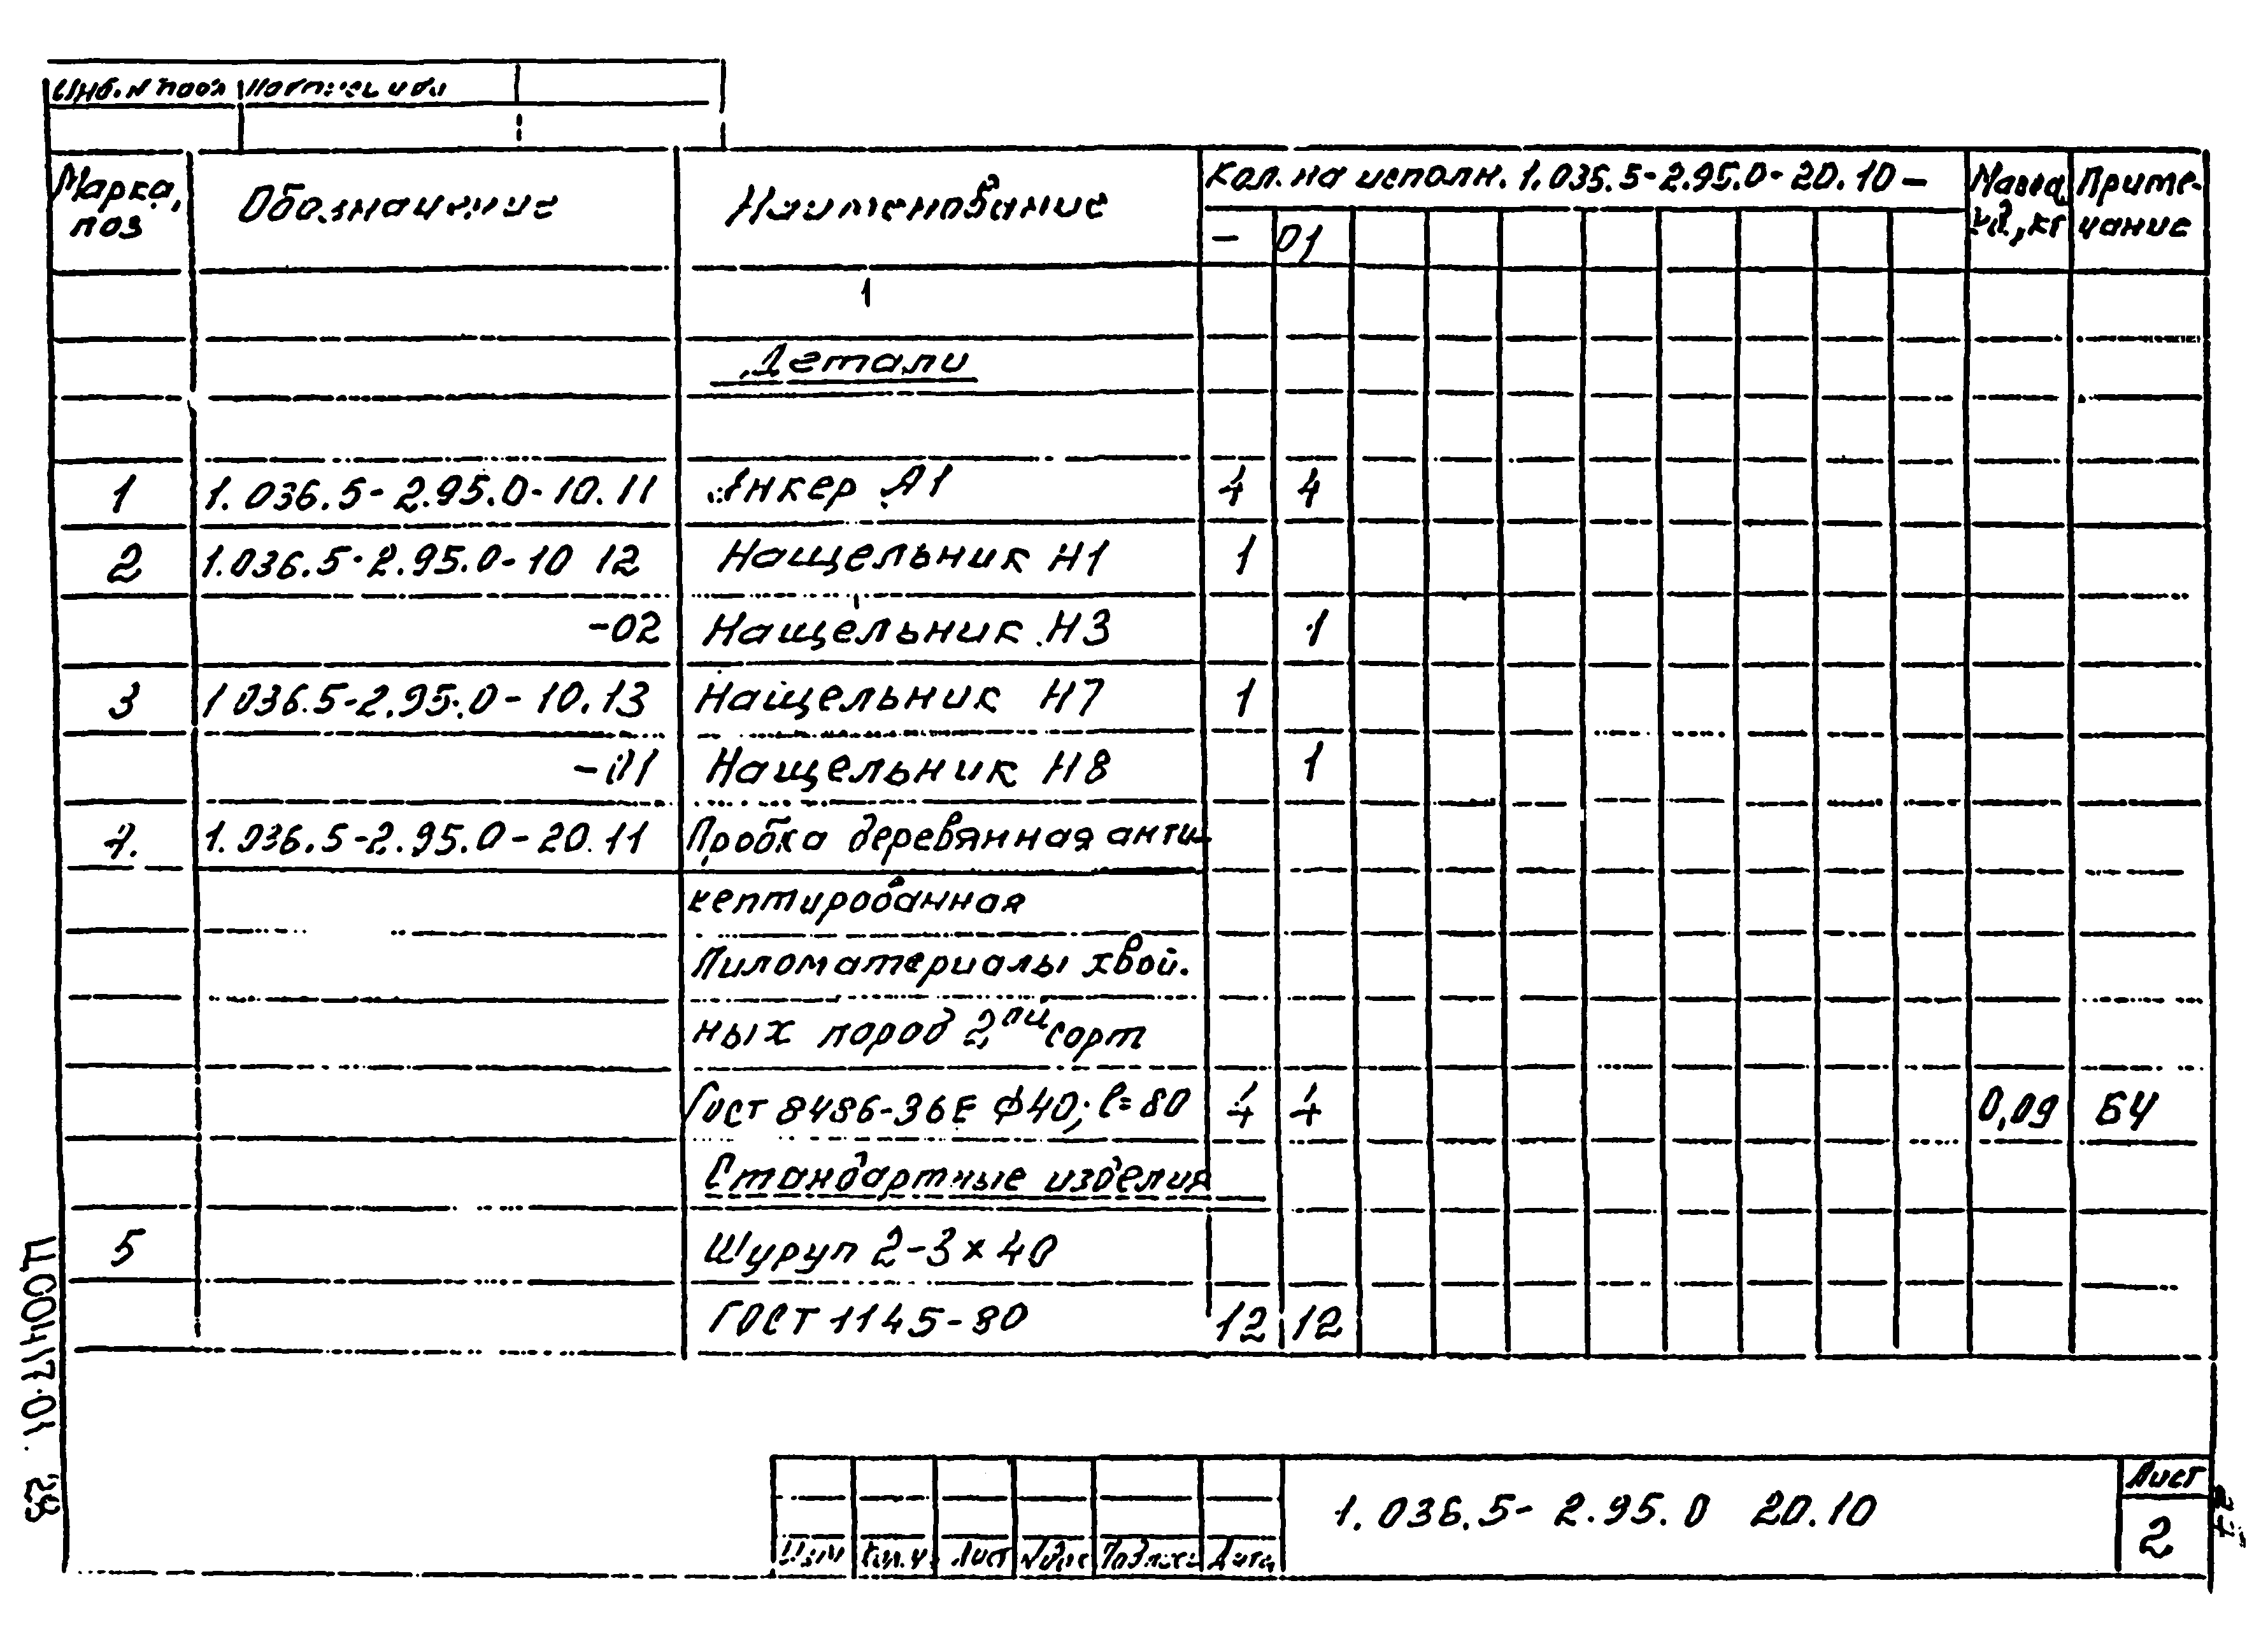 Инв. N подл Подпись и
Марка, поз Обозначение Наименование Кол. на исполн. 1.036.5-2.95.0-20.10- Масса ид, кг Примечание
- 01
Детали
1 1.036.5-2.95.0-10.11 Анкер А1 4 4
2 1.036.5-2.95.0-10 12 Нащельник Н1 1
-02 Нащельник Н3 1
3 1 036.5-2.95.0-10.13 Нащельник Н7 1
-01 Нащельник Н8 1
4. 1.036.5-2.95.0-20.11 Пробка деревянная анти-
кептированная
Пиломатериалы хвой.
ных пород 2, ой сорт
Гост 8486-86Е ф40; l=80 4 4 0,09 БЧ
Стандартные изделия
5 Шуруп 2-3х40
ГОСТ 1145-80 12 12
Ц00417-01 29
1.036.5-2.95.0 20.10
Лист
2
Изм Кол.ч. Лист Nдок Подпись Дата